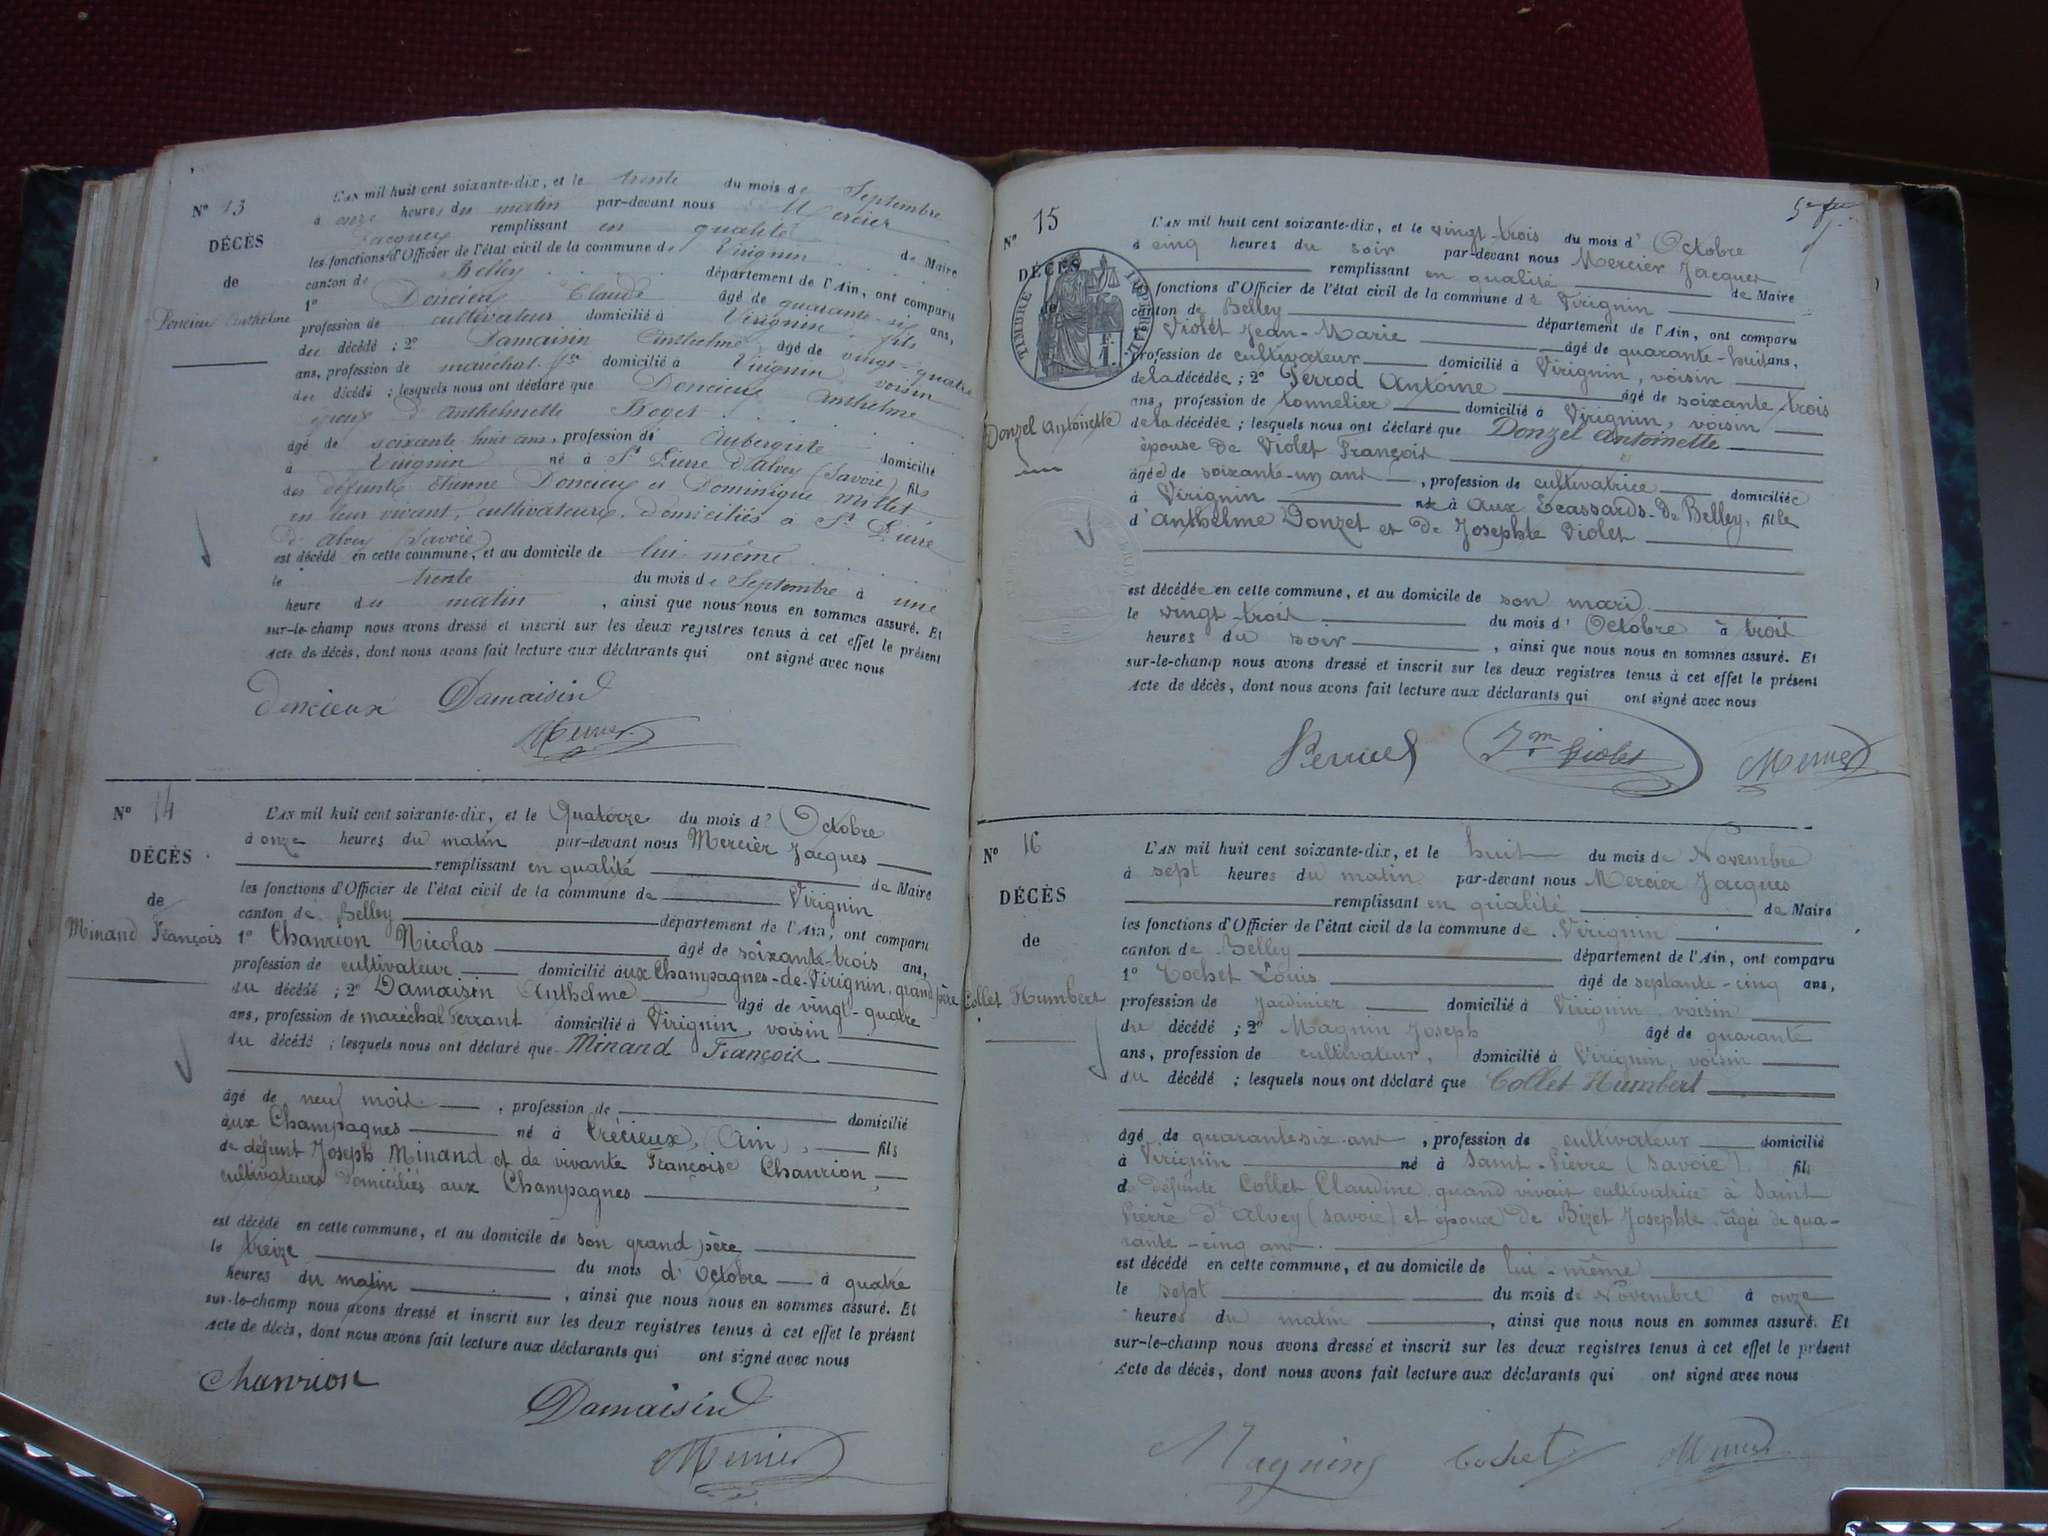 N° 13
DÉCÈS
de
Doncieux Anthelme
L'AN mil huit cent soixante-dix, et le trente du mois de Septembre
à onze heures du matin par-devant nous Mercier
Jacques remplissant en qualité de Maire
les fonctions d'Officier de l'état civil de la commune de Virignin
canton de Belley département de l'Ain, ont comparu
1° Doncieux Claude âgé de quarante-six ans,
profession de cultivateur domicilié à Virignin fils
du décédé ; 2° Damaisin Anthelme âgé de vingt-quatre
ans, profession de maréchal-ft domicilié à Virignin voisin
du décédé ; lesquels nous ont déclaré que Doncieux Anthelme
époux d'Anthelmette Roget
âgé de soixante huit ans, profession de Aubergiste domicilié
à Virignin né à St Pierre d'Alvey (Savoie) fils
des défunts Etienne Doncieux et Dominique Millet
en leur vivant, cultivateurs, domiciliés à St Pierre
d'Alvey (Savoie)
est décédé en cette commune, et au domicile de lui-même
le trente du mois de Septembre à une
heure du matin, ainsi que nous nous en sommes assuré. Et
sur-le-champ nous avons dressé et inscrit sur les deux registres tenus à cet effet le présent
Acte de décès, dont nous avons fait lecture aux déclarants qui ont signé avec nous
Doncieux Damaisin
Mercier
N° 14
DÉCÈS
de
Minand François
L'AN mil huit cent soixante-dix, et le Quatorze du mois d' Octobre
à onze heures du matin par-devant nous Mercier Jacques
remplissant en qualité de Maire
les fonctions d'Officier de l'état civil de la commune de Virignin
canton de Belley département de l'Ain, ont comparu
1° Chanrion Nicolas âgé de soixante-trois ans,
profession de cultivateur domicilié aux Champagnes-de-Virignin, grand père
du décédé ; 2° Damaisin Anthelme âgé de vingt-quatre
ans, profession de maréchal ferrant domicilié à Virignin, voisin
du décédé ; lesquels nous ont déclaré que Minand François
âgé de neuf mois, profession de domicilié
aux Champagnes né à Crécieux, (Ain), fils
de défunt Joseph Minand et de vivante Françoise Chanrion,
cultivateurs domiciliés aux Champagnes
est décédé en cette commune, et au domicile de son grand père
le treize du mois d' Octobre à quatre
heures du matin, ainsi que nous nous en sommes assuré. Et
sur-le-champ nous avons dressé et inscrit sur les deux registres tenus à cet effet le présent
Acte de décès, dont nous avons fait lecture aux déclarants qui ont signé avec nous
Chanrion
Damaisin
Mercier
N° 15
DÉCÈS
de
TIMBRE IMPÉRIAL
Donzel Antoinette
L'AN mil huit cent soixante-dix, et le vingt-trois du mois d' Octobre
à cinq heures du soir par-devant nous Mercier Jacques
remplissant en qualité de Maire
fonctions d'Officier de l'état civil de la commune de Virignin
canton de Belley département de l'Ain, ont comparu
Violet Jean-Marie âgé de quarante-huit ans,
profession de cultivateur domicilié à Virignin, voisin
de la décédée ; 2° Perrod Antoine âgé de soixante trois
ans, profession de tonnelier domicilié à Virignin, voisin
de la décédée ; lesquels nous ont déclaré que Donzel Antoinette
épouse de Violet François
âgée de soixante-un ans, profession de cultivatrice domiciliée
à Virignin née à Aux Ecassards-de Belley, fille
d'Anthelme Donzel et de Josephte Violet
est décédée en cette commune, et au domicile de son mari
le vingt-trois du mois d' Octobre à trois
heures du soir, ainsi que nous nous en sommes assuré. Et
sur-le-champ nous avons dressé et inscrit sur les deux registres tenus à cet effet le présent
Acte de décès, dont nous avons fait lecture aux déclarants qui ont signé avec nous
Jm Violet Mercier
N° 16
DÉCÈS
de
Collet Humbert
L'AN mil huit cent soixante-dix, et le huit du mois de Novembre
à sept heures du matin par-devant nous Mercier Jacques
remplissant en qualité de Maire
les fonctions d'Officier de l'état civil de la commune de Virignin
canton de Belley département de l'Ain, ont comparu
1° Cochet Louis âgé de septante-cinq ans,
profession de Jardinier domicilié à Virignin, voisin
du décédé ; 2° Magnin Joseph âgé de quarante
ans, profession de cultivateur, domicilié à Virignin, voisin
du décédé ; lesquels nous ont déclaré que Collet Humbert
âgé de quarante six ans, profession de cultivateur domicilié
à Virignin né à Saint-Pierre (Savoie) fils
de défunte Collet Claudine quand vivait cultivatrice à Saint
Pierre d'Alvey (Savoie) et époux de Bizet Josephte âgée de qua-
rante-cinq ans.
est décédé en cette commune, et au domicile de lui-même
le sept du mois de Novembre à onze
heures du matin, ainsi que nous nous en sommes assuré. Et
sur-le-champ nous avons dressé et inscrit sur les deux registres tenus à cet effet le présent
Acte de décès, dont nous avons fait lecture aux déclarants qui ont signé avec nous
Magnin Cochet Mercier